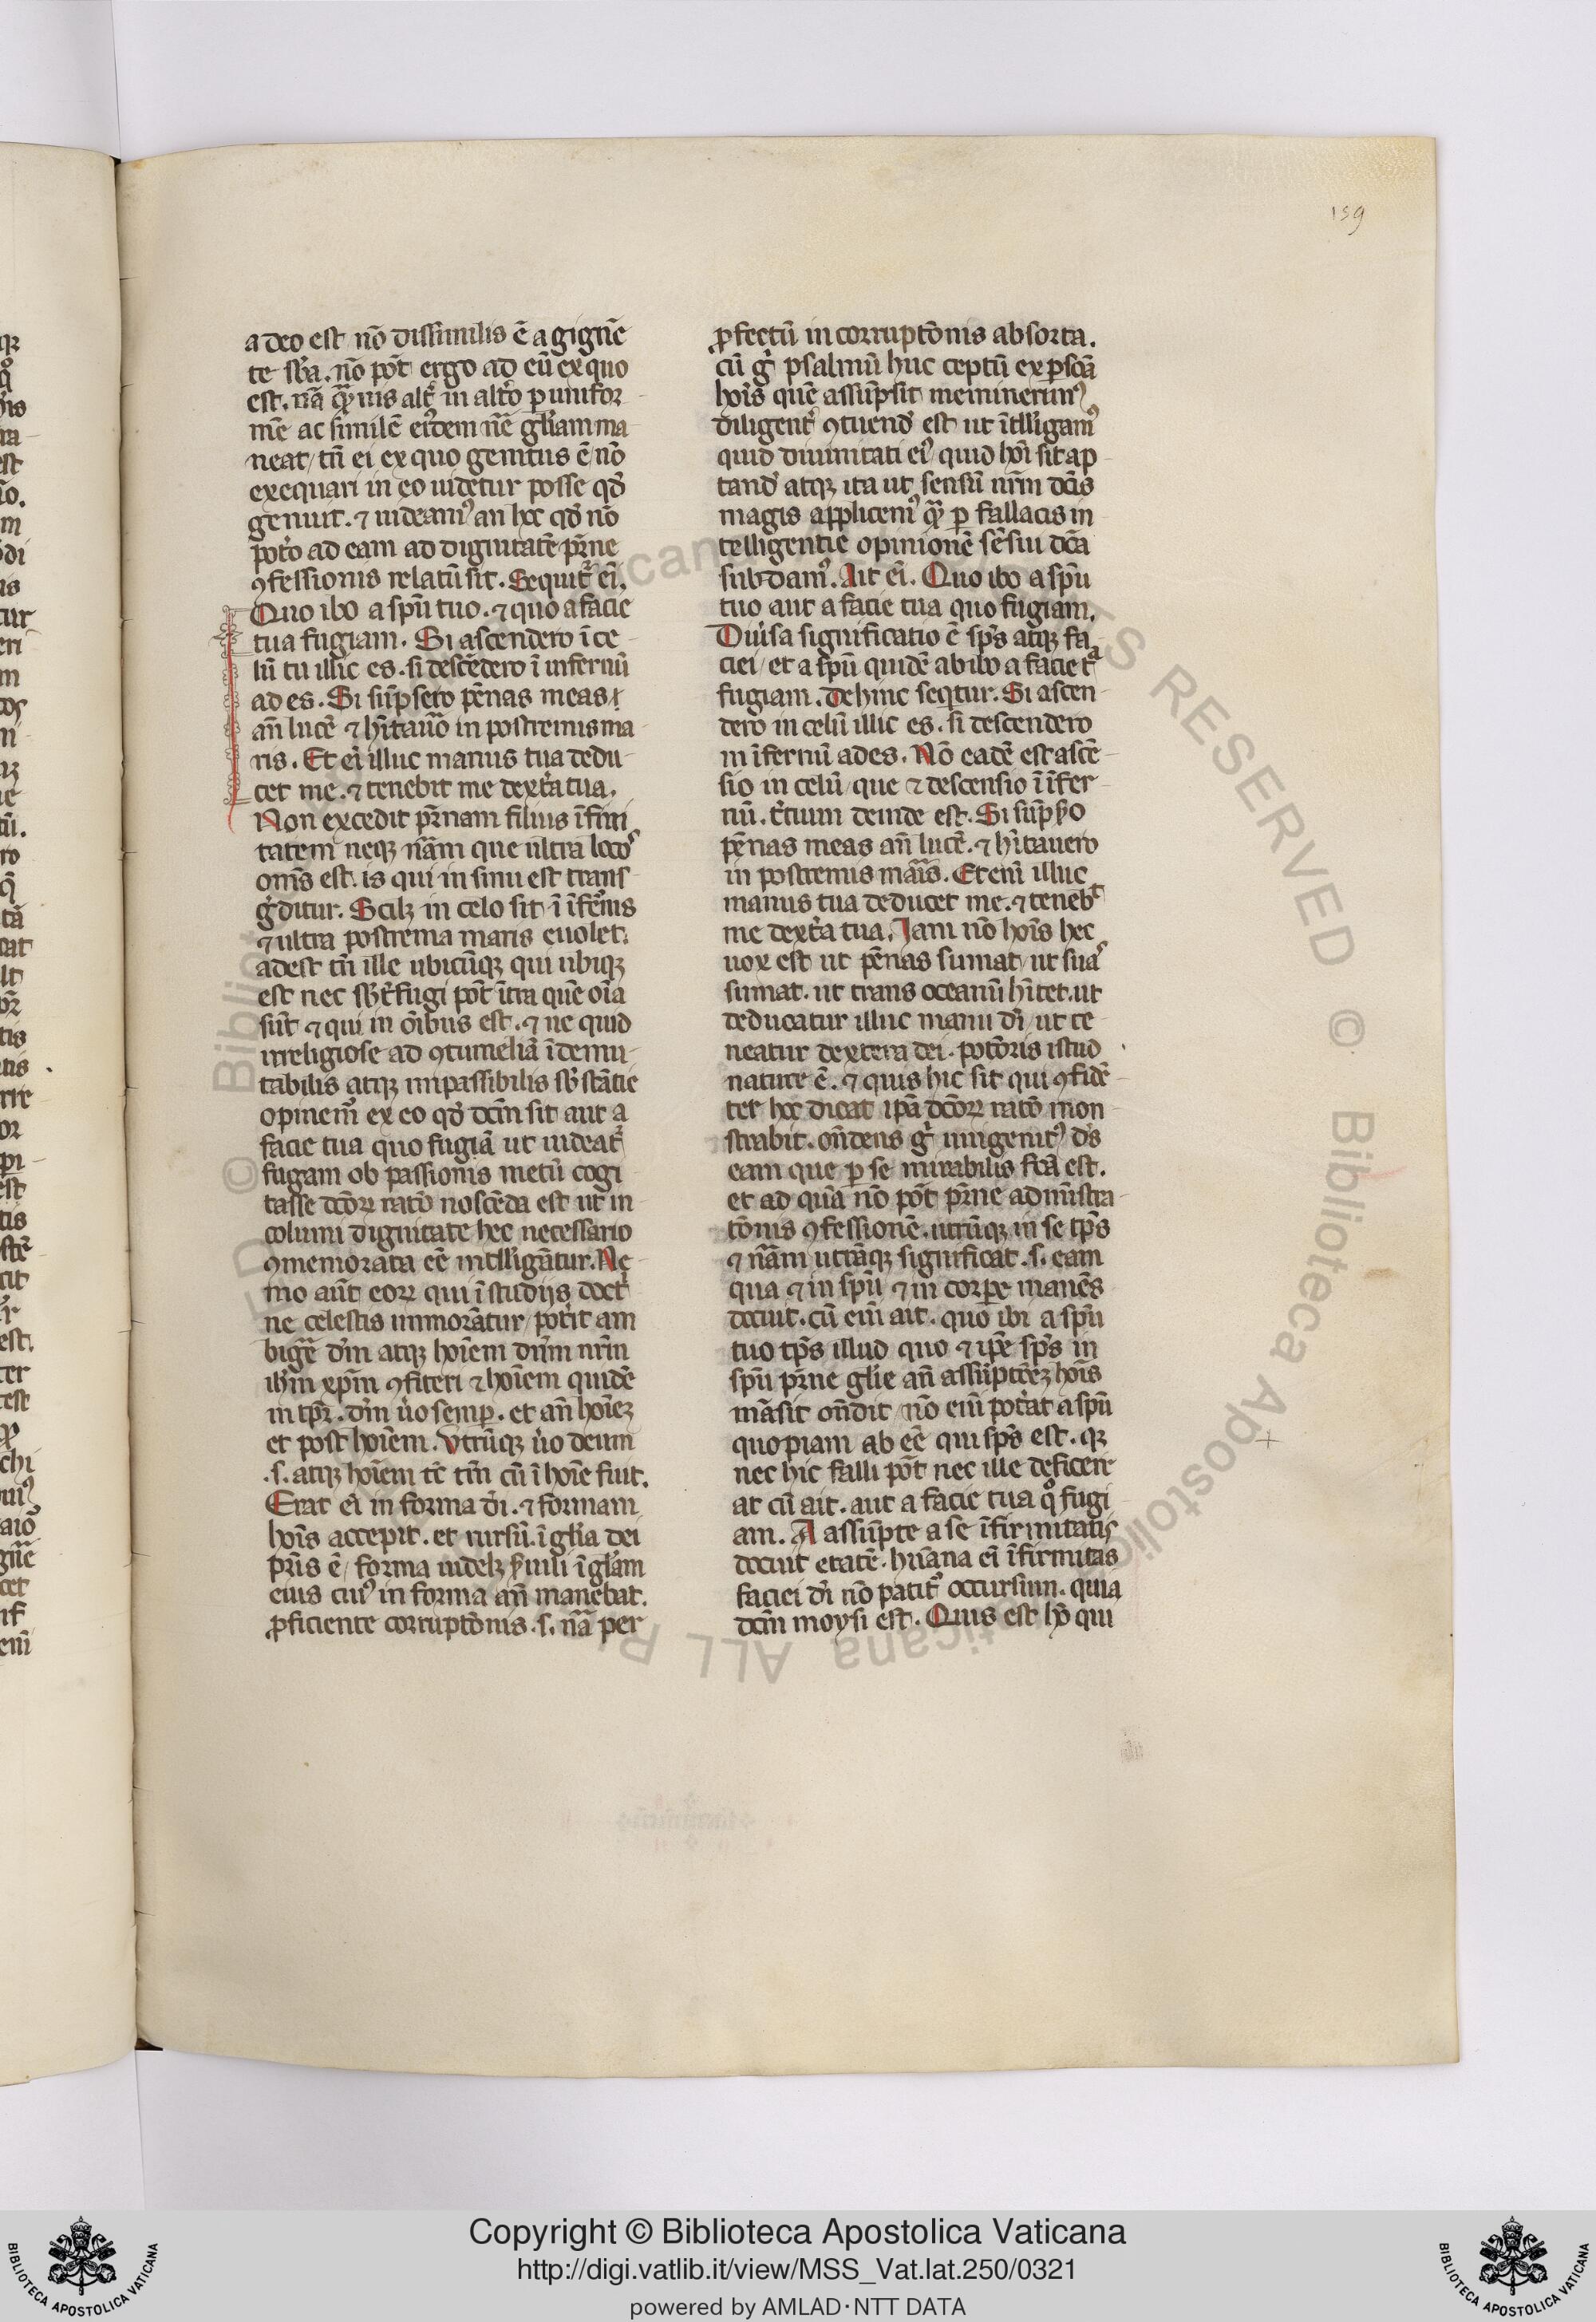 159
a deo est nō dissimilis ē a gignē
te sb̄a. nō pōt ergo ad eū ex quo
est. nā q̄uis alt̄ in alt̄o p unifor
mē ac similē eiꝰdem nr̄e gl̄iam ma
neat / tn̄ ei ex quo genitus ē / nō
exequari in eo uidetur posse qd̄
genuit. ⁊ uideamꝰ an hec qd̄ nō
pot̄o ad eam ad dignitatē pr̄ne
ꝯfessionis relatū sit. Sequit̄ ei̅.
Quo ibo a spū tuo. ⁊ quo a facie
tua fugiam. Si ascendero ī ce
lū tu illic es. si descēdero ī infernū
ad es. Si sūpsero pēnas meas
an̄ lucē ⁊ hītau̅o in postremis ma
ris. Et ei̅ illuc manus tua dedu
cet me. ⁊ tenebit me dext̄a tua.
Non excedit pr̄nam filius īfini
tatem neqꝫ nāꝫ que ultra locoˢ
om̄s est. is qui in sinu est trans
gḋitur. Scilꝫ in celo sit ī īfern̄is
⁊ ultra postrema maris euolet.
adest tn̄ ille ubicūqꝫ qui ubiqꝫ
est nec sbt̄fugi pōt īra quē oīa
sūt ⁊ qui in oībus est. ⁊ ne quid
irreligiose ad ꝯtumeliā īdemu
tabilis atqꝫ impassibilis sb̄stātie
opinemꝰ ex eo qd̄ dc̄m sit aut a
facie tua quo fugiā ut uideat̄
fugam ob passionis metū cogi
tasse dc̄oꝝ ratō noscēda est ut in
columi dignitate hec necessario
ꝯmemorata eē intll̄igātur. Ne
mo aūt eoꝝ qui ī studijs doct̄
ne celestis immorātur / pot̄it am
big̅e dm̄ atqꝫ hoīem dnm̄ nr̄m
ih̄m xp̄m ꝯfiteri ⁊ hoīem quidē
in tp̄r. dm̄ u̇o semp. et an̄ hoīeꝫ
et post hoīem. Vtrūqꝫ u̇o deum
.s. atqꝫ hoīem tc̄ tm̄ cū ī hoīe fuit.
Erat ei̅ in forma dī. ⁊ formam
hoīs accepit. et rursū. ī gl̄ia dei
pr̄is ē / forma uidelꝫ ẜuili ī gl̄iam
eius cuiꝰ in forma an̄ manebat.
ꝓficiente corruptōnis .s. nā̅ per
ꝓfectū incorruptōnis absorta.
cū g̊ psalmū huc ceptū ex ꝑsōa
hoīs quē assūpsit meminerimꝰ
diligent̄ ꝯtuend̄ est ut ītll̄igamꝰ
quid diuinitati eiꝰ quid hoī sit ap
tand̄ atqꝫ ita ut sensū nr̄m dc̄is
magis applicemꝰ q̄ ꝑ fallacis in
telligentie opinionē sēsui dc̄a
subdamꝰ. Ait ei̅. Quo ibo a spū
tuo aut a facie tua quo fugiam.
Diu̇sa significatio ē sp̄s atqꝫ fa
ciei / et a spū quidē ab ibo a facie tᵃ
fugiam. Dehinc seqtur. Si ascen
dero in celū illic es. si descendero
in īfernū ades. Nō eadē est ascē
sio in celū / que ⁊ descensio ī īfer
nū. t̄cium deinde est. Si sūpẜo
pēnas meas an̄ lucē. ⁊ hītauero
in postremis ma̅is. Etenī illuc
manus tua deducet me. ⁊ tenebᵗ
me dext̄a tua. Iam nō hoīs hec
uox est ut pēnas sumat / ut suaˢ
sumat. ut trans oceanū hītet. ut
deducatur illuc manu dī / ut te
neatur dextera dei. potōris istud
nature ē. ⁊ quis hic sit qui ꝯfidē
ter hec dicat ipā dc̄oꝝ ratō mon
strabit. on̄dens g̊ unigenitꝰ ds̄
eam que p se mirabilis fc̄a est.
et ad quā nō pōt pr̄ne admīstra
tōnis ꝯfessionē. utrūqꝫ in se tp̄s
⁊ nām utrāqꝫ significat .s. eam
qua ⁊ in spū ⁊ in corpe manēs
docuit. cū enī ait. quo ibi a spū
tuo tp̄s illud quo ⁊ ip̄e sp̄s in
spū pr̄ne gl̄ie an̄ assūptōeꝫ hoīs
māsit on̄dit / nō enī pot̄at a spū
quopiam ab eē qui sp̄s est. qꝫ
nec hic falli pōt nec ille deficere
at cū ait. aut a facie tua q̊ fugi
am. A assūpte a se īfirmitatis
docuit etatē. hūana ei̅ īfirmitas
faciei dī nō patitꝰ occursum. quia
dc̄m moysi est. Quis est hō qui
Copyright © Biblioteca Apostolica Vaticana
http://digi.vatlib.it/view/MSS_Vat.lat.250/0321
powered by AMLAD·NTT DATA
BIBLIOTECA APOSTOLICA VATICANA
BIBLIOTECA APOSTOLICA VATICANA